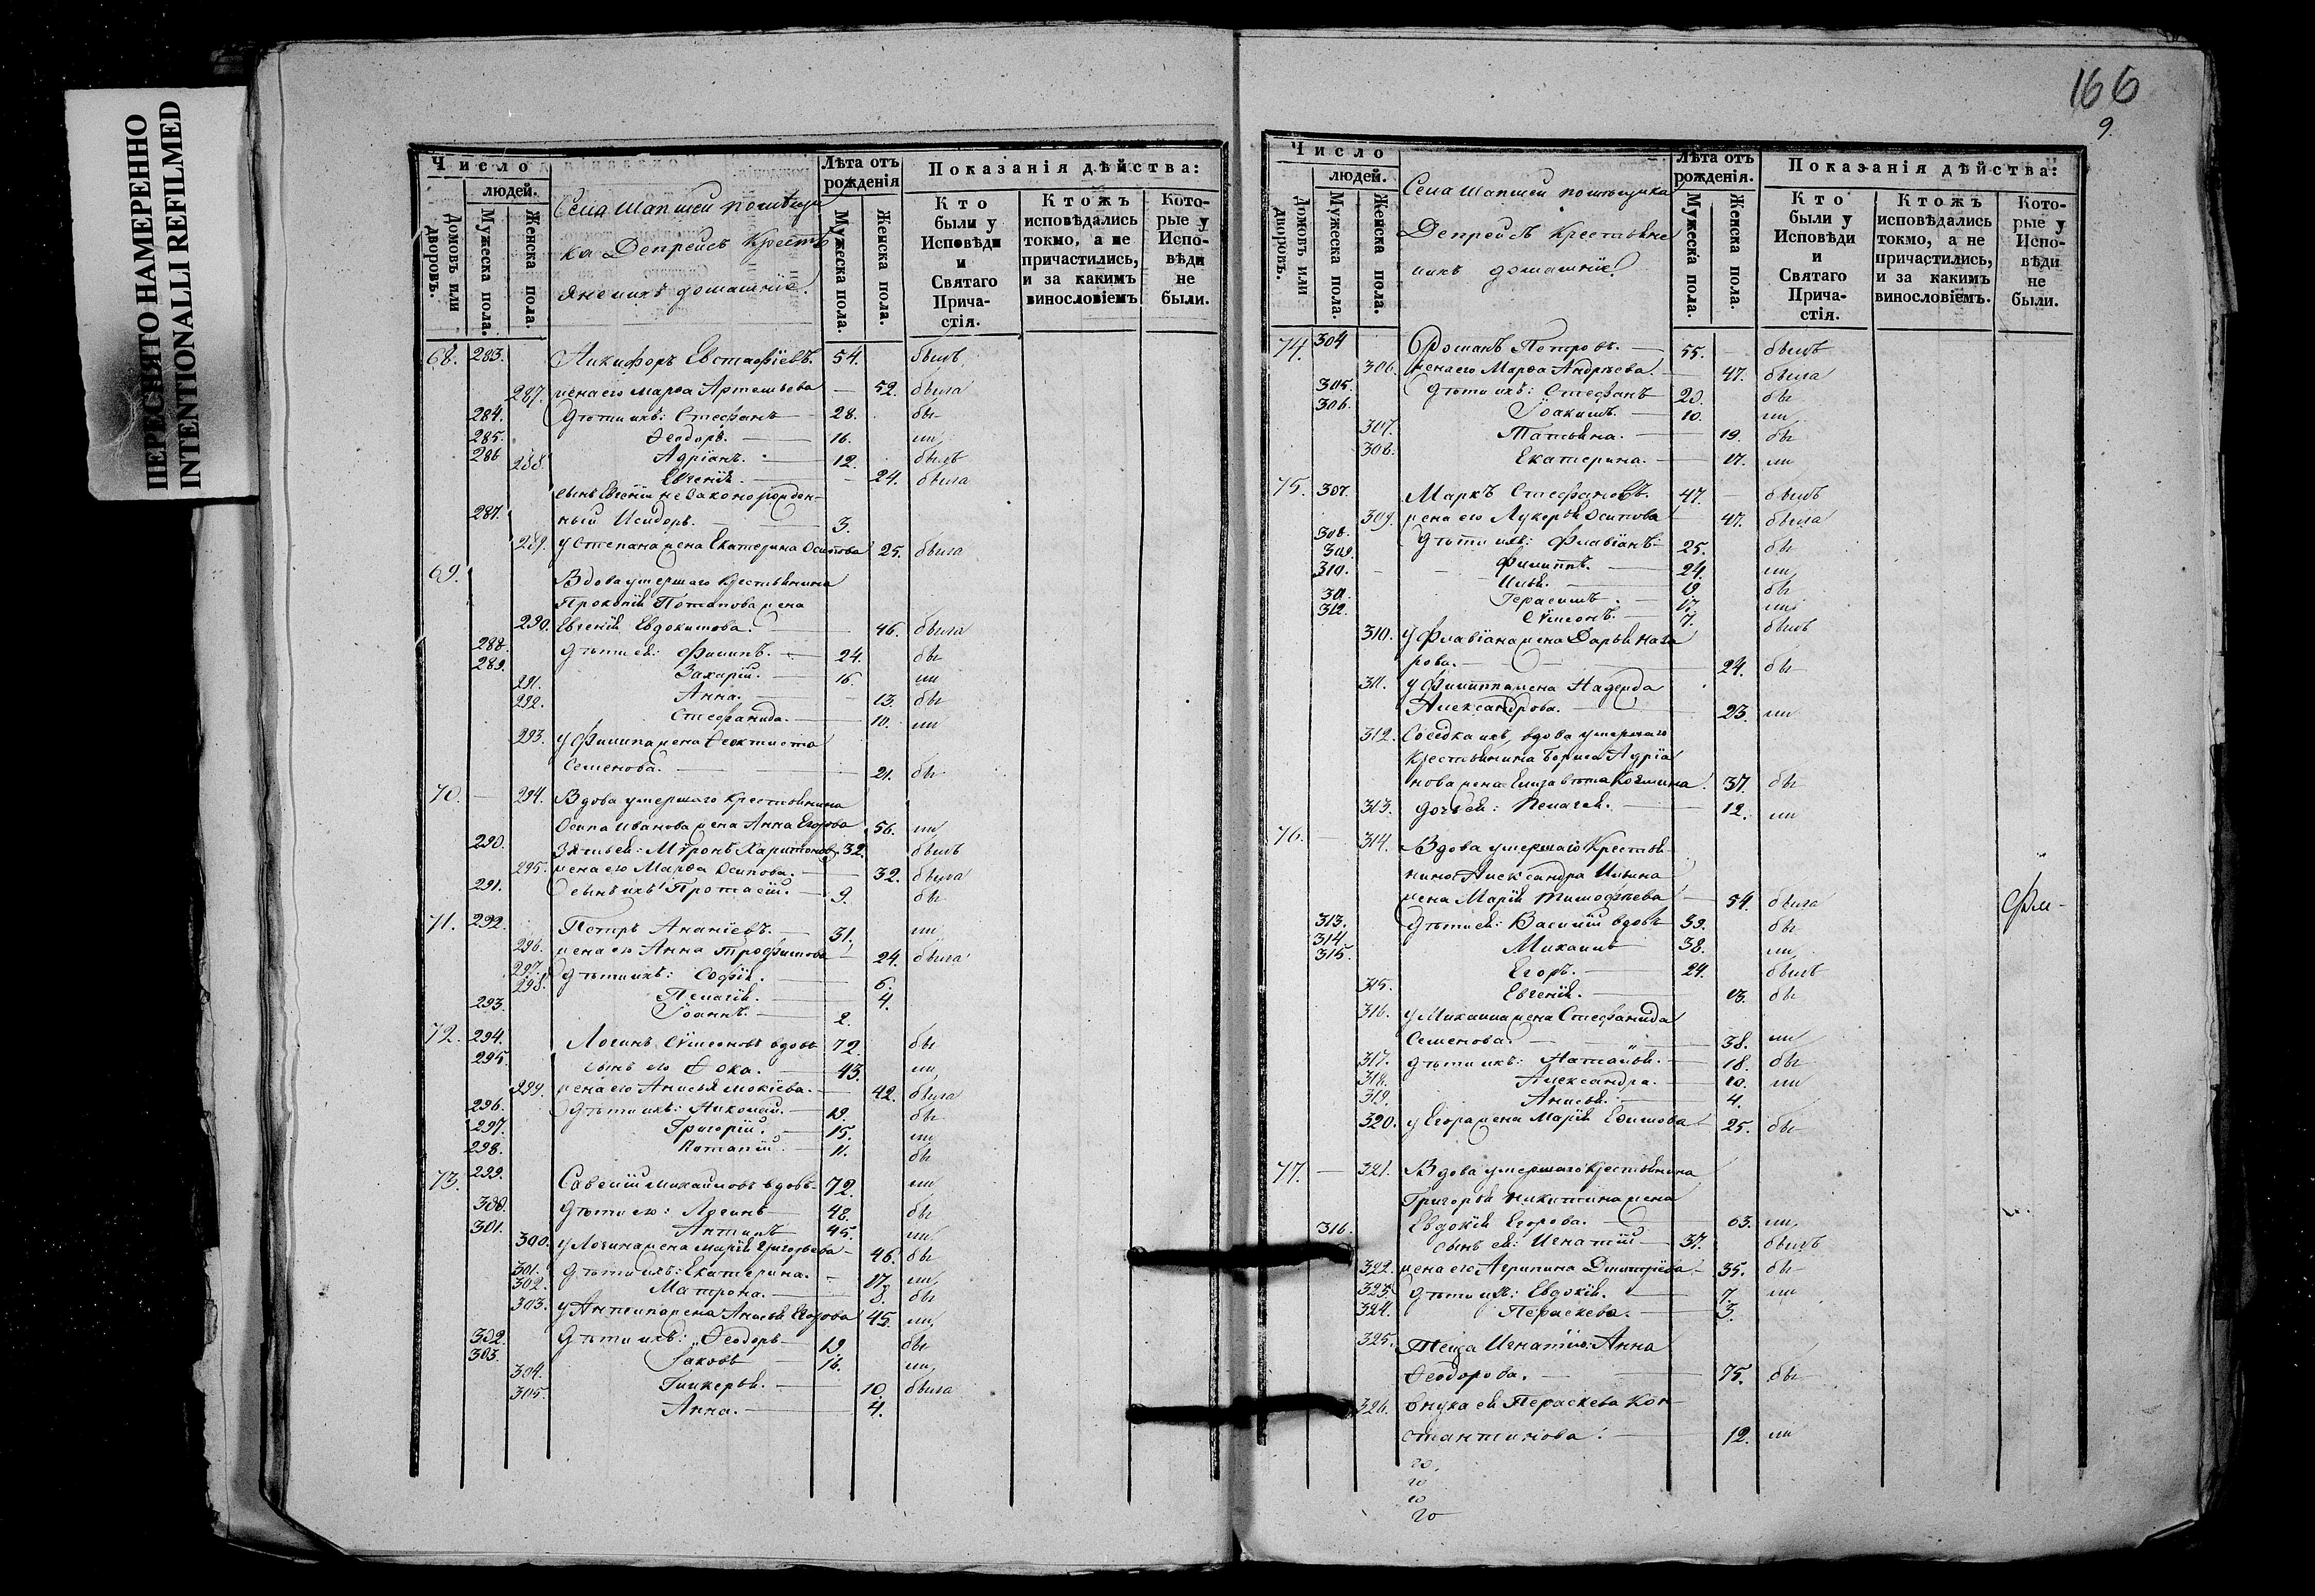 ПЕРЕСНЯТО НАМЕРЕННО
INTENTIONALLI REFILMED
Число
людей.
Домовъ или дворовъ.
Мужеска пола.
Женска пола.
Села Шапшей помѣщи
ка Депрейсъ Крестъ
яне ихъ домашніе.
Лѣта отъ рожденія
Мужеска пола.
Женска пола.
Показанія дѣйства:
Кто были у Исповѣди и Святаго Причастія.
Ктожъ исповѣдались токмо, а не причастились, и за какимъ винословіемъ
Которые у Исповѣди не были.
68. 283. Никифоръ Евстафіевъ. 54. былъ
287. жена его Марѳа Артемьева 52. была
284. Дѣти ихъ: Стефанъ 28. бы
285. Ѳеодоръ. 16. ли
286 Адріанъ. 12. былъ
288. Евгенія. 24. была
сынъ Евгеніи незаконорожден-
287. ный Исидоръ. 3.
289. у Степана жена Екатерина Осипова 25. была
69. Вдова умершаго крестьянина
Прокопія Потапова жена
290. Евгенія Евдокимова. 46. была
288. Дѣти ея: Филипъ. 24. бы
289. Захарій. 16. ли
291. Анна. 13. бы
292. Стефанида. 10. ли
293. у Филипа жена Ѳеоктиста
Семенова. 21. бы
70. 294. Вдова умершаго крестьянина
Осипа Иванова жена Анна Егорова 56. ли
290. Зять ея: Мѵронъ Харитоновъ 32. былъ
295. жена его Марѳа Осипова. 32. была
291. сынъ ихъ Протасій. 9. бы
71. 292. Петръ Ананіевъ. 31. ли
296. жена его Анна Трофимова 24. была
297. Дѣти ихъ: Софія. 6.
298. Пелагія. 4.
293. Іоаннъ. 2.
72. 294. Логинъ Сѵмеоновъ вдовъ 72. бы
295. сынъ его Ѳока. 43. ли
299. жена его Анисья Мокіева. 42. была
296. Дѣти ихъ: Николай. 19. бы
297. Григорій. 15. ли
298. Потапій. 11. бы
73. 299. Савелій Михайловъ вдовъ 72. ли
300. Дѣти его: Логинъ 48. бы
301. Антипъ 45. ли
300. у Логина жена Марія Григорьева 46. бы
301. Дѣти ихъ: Екатерина. 17. ли
302. Матрона. 8. бы
303. у Антипа жена Анисья Егорова 45. ли
302. Дѣти ихъ: Ѳеодоръ 19. бы
303. Іаковъ 16. ли
304. Гликерья. 10. была
305. Анна. 4.
166
9.
Число
людей.
Домовъ или дворовъ.
Мужеска пола.
Женска пола.
Села Шапшей помѣщика
Депрейсъ Крестьяне
ихъ домашніе.
Лѣта отъ рожденія.
Мужеска пола.
Женска пола.
Показанія дѣйства:
Кто были у Исповѣди и Святаго Причастія.
Ктожъ исповѣдались токмо, а не причастились, и за какимъ винословіемъ.
Которые у Исповѣди не были.
74. 304 Романъ Петровъ. 55. былъ
306. жена его Марѳа Андреева 47. была
305. Дѣти ихъ: Стефанъ 20. бы
306. Іоакимъ. 10. ли
307. Татьяна. 19. бы
308. Екатерина. 17. ли
75. 307. Маркъ Стефановъ. 47. былъ
309. жена его Лукерья Осипова 47. была
308. Дѣти ихъ: Флавіанъ 25. бы
309. Филиппъ. 24. ли
310. Илья. 19. бы
311. Герасимъ. 17. ли
312. Сѵмеонъ. 7. былъ
310. у Флавіана жена Дарья Наза
рова. 24. бы
311. у Филиппа жена Надежда
Александрова. 23. ли
312. Сосѣдка ихъ, вдова умершаго
крестьянина Бориса Адріа
нова жена Елизавета Козмина 37. бы
313. дочь ея: Пелагея. 12. ли
76. 314. Вдова умершаго крестья
нина Александра Ильина
жена Марія Тимофѣева 54. была
313. Дѣти ея: Василій вдовъ 39. бы
314. Михаилъ 38. ли
315. Егоръ. 24. былъ
315. Евгенія. 13. бы
316. у Михаила жена Стефанида
Семенова. 38. ли
317. Дѣти ихъ: Наталья. 18. бы
318. Александра. 10. ли
319. Анисья. 4.
320. у Егора жена Марія Ефимова 25. бы
77. 321. Вдова умершаго крестьянина
Григорья Никитина жена
Евдокія Егорова. 63. ли
316. сынъ ея: Игнатій 37. былъ
322. жена его Агрипина Дмитріева 35. бы
323. Дѣти ихъ: Евдокія. 7. ли
324. Пераскева. 3.
325. Теща Игнатію: Анна
Ѳеодорова. 75. бы
326. внука ея Пераскева Кон-
стантинова. 12. ли